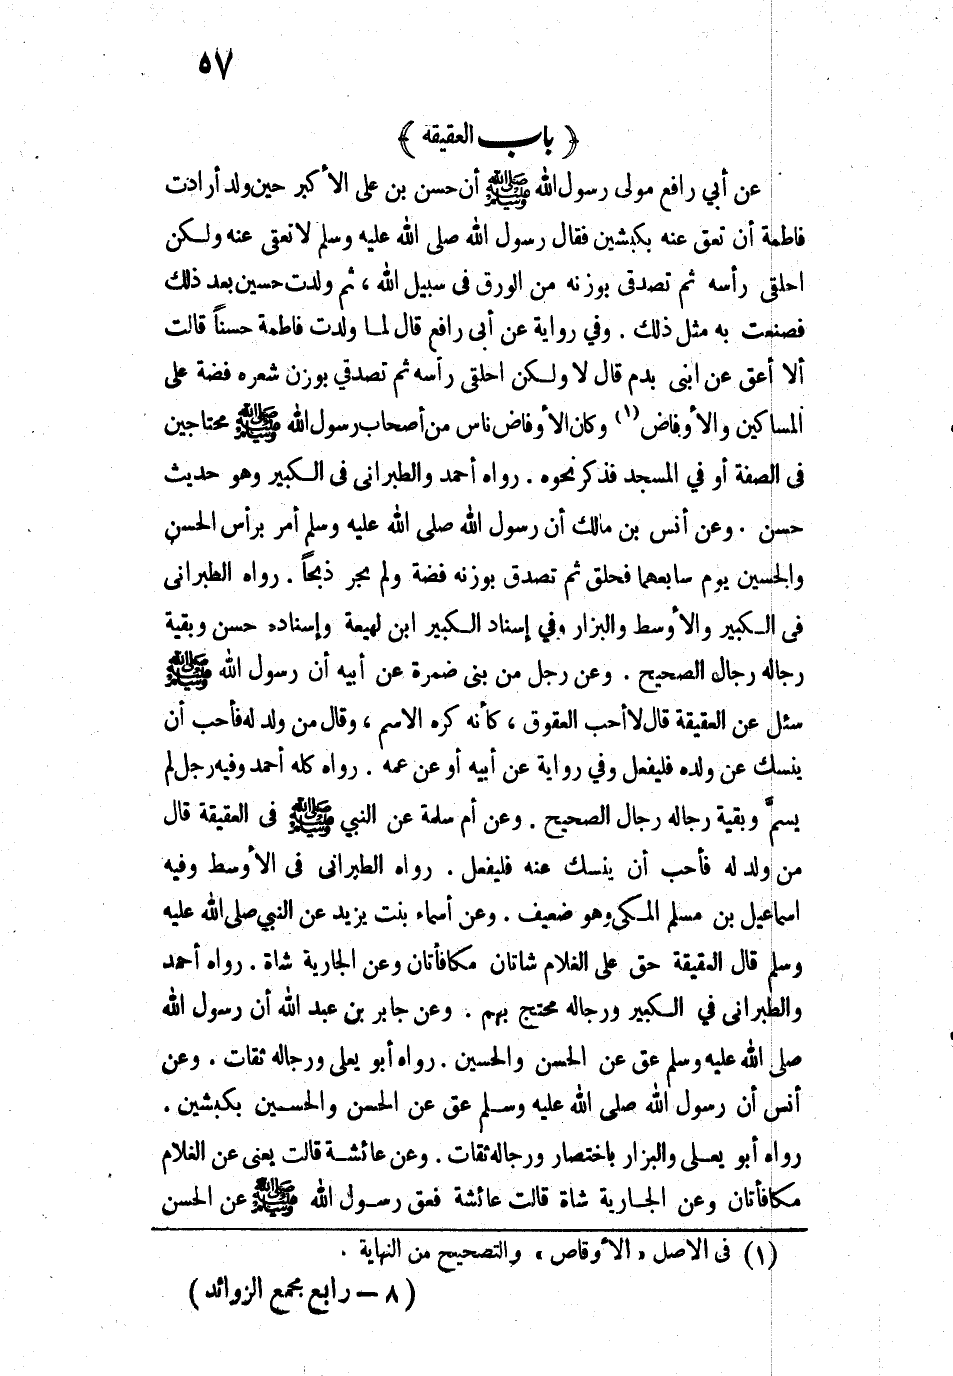 ٥٧
﴿ باب العقيقه ﴾
عن أبي رافع مولى رسول الله ﷺ أن حسن بن على الأكبر حين ولد أرادت
فاطمة أن تعق عنه بكبشين فقال رسول الله صلى الله عليه وسلم لا تعقى عنه ولكن
احلقى رأسه ثم تصدقى بوزنه من الورق فى سبيل الله ، ثم ولدت حسين بعد ذلك
فصنعت به مثل ذلك . وفي رواية عن أبى رافع قال لما ولدت فاطمة حسناً قالت
ألا أعق عن ابنى بدم قال لا ولكن احلقى رأسه ثم تصدقي بوزن شعره فضة على
المساكين والأوفاض (١) وكان الأوفاض ناس من أصحاب رسول الله ﷺ محتاجين
فى الصفة أو في المسجد فذكر نحوه . رواه أحمد والطبرانى فى الكبير وهو حديث
حسن . وعن أنس بن مالك أن رسول الله صلى الله عليه وسلم أمر برأس الحسن
والحسين يوم سابعهما فحلق ثم تصدق بوزنه فضة ولم يجر ذبحاً . رواه الطبرانى
فى الكبير والأوسط والبزار وفي إسناد الكبير ابن لهيعة وإسناده حسن وبقية
رجاله رجال الصحيح . وعن رجل من بنى ضمرة عن أبيه أن رسول الله ﷺ
سئل عن العقيقة قال لا أحب العقوق ، كأنه كره الاسم ، وقال من ولد له فأحب أن
ينسك عن ولده فليفعل وفي رواية عن أبيه أو عن عمه . رواه كله أحمد وفيه رجل لم
يسمَّ وبقية رجاله رجال الصحيح . وعن أم سلمة عن النبي ﷺ فى العقيقة قال
من ولد له فأحب أن ينسك عنه فليفعل . رواه الطبرانى فى الأوسط وفيه
اسماعيل بن مسلم المكى وهو ضعيف . وعن أسماء بنت يزيد عن النبي صلى الله عليه
وسلم قال العقيقة حق على الغلام شاتان مكافأتان وعن الجارية شاة . رواه أحمد
والطبرانى في الكبير ورجاله محتج بهم . وعن جابر بن عبد الله أن رسول الله
صلى الله عليه وسلم عق عن الحسن والحسين . رواه أبو يعلى ورجاله ثقات . وعن
أنس أن رسول الله صلى الله عليه وسلم عق عن الحسن والحسين بكبشين .
رواه أبو يعلى والبزار باختصار ورجاله ثقات . وعن عائشة قالت يعنى عن الغلام
مكافأتان وعن الجارية شاة قالت عائشة فعق رسول الله ﷺ عن الحسن
(١) فى الاصل « الأوقاص » والتصحيح من النهاية .
( ٨ - رابع مجمع الزوائد )